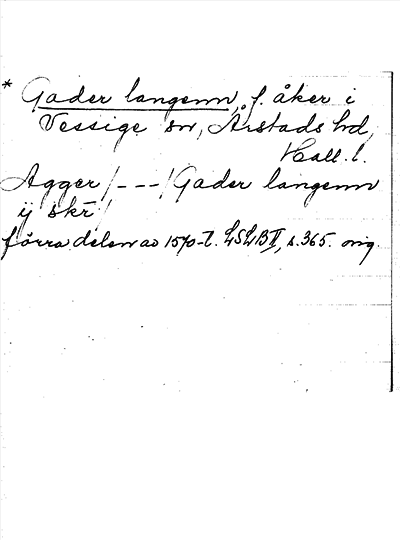 * Gader langenn, f. åker i
Vessige sn, Årstads hd,
Hall. l.
Agger /---/ Gader langenn
ij skr̄
förra delen av 1570-t. LSLB II, s. 365. orig.